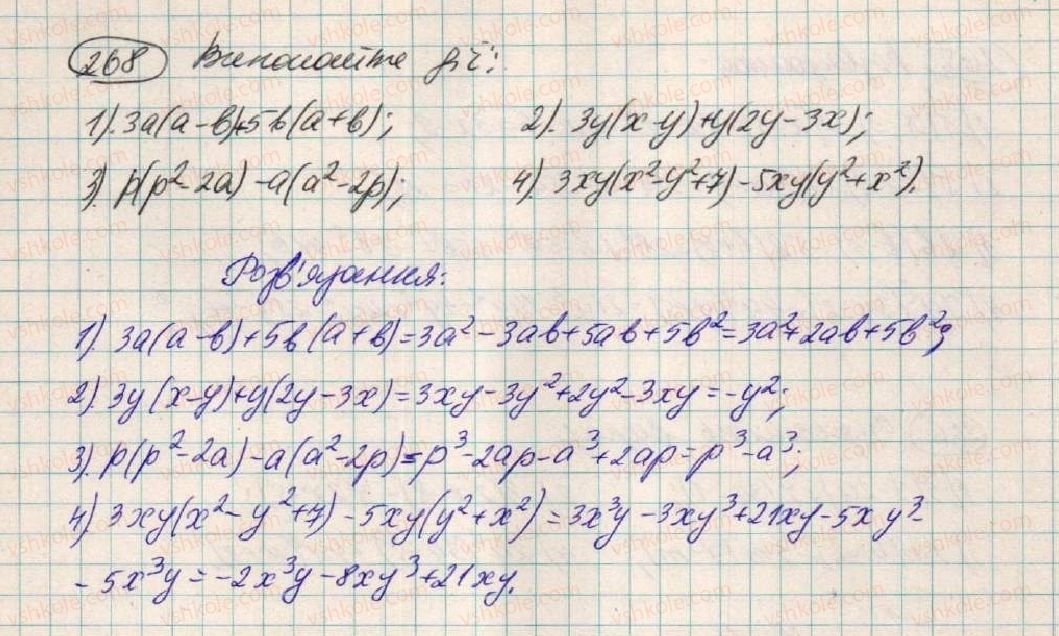 268 Виконайте дії:
1). 3a(a-b)+5b(a+b); 2). 3y(x-y)+y(2y-3x);
3). p(p²-2a)-a(a²-2p); 4). 3xy(x²-y²+7)-5xy(y²+x²).
Розв'язання:
1). 3a(a-b)+5b(a+b)=3a²-3ab+5ab+5b²=3a²+2ab+5b²;
2). 3y(x-y)+y(2y-3x)=3xy-3y²+2y²-3xy=-y²;
3). p(p²-2a)-a(a²-2p)=p³-2ap-a³+2ap=p³-a³;
4) 3xy(x²-y²+7)-5xy(y²+x²)=3x³y-3xy³+21xy-5xy³-
-5x³y=-2x³y-8xy³+21xy.